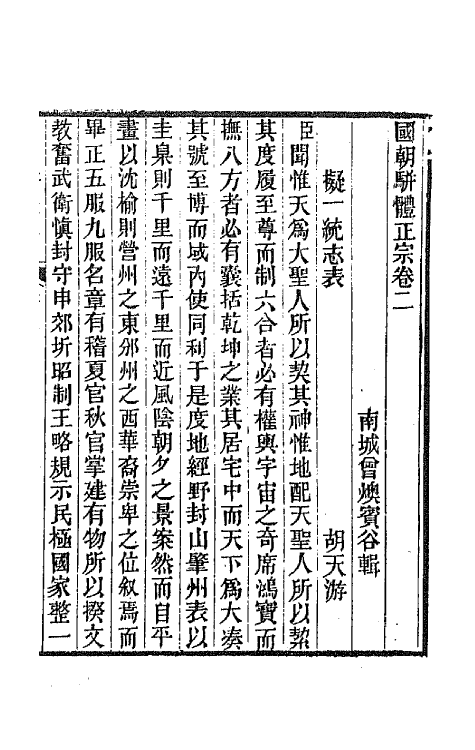 國朝駢體正宗卷二
南城曾燠賓谷輯
擬一統志表
胡天游
臣聞惟天爲大聖人所以契其神惟地配天聖人所以絜
其度履至尊而制六合者必有權輿宇宙之奇席鴻寶而
撫八方者必有囊括乾坤之業其居宅中而天下爲大奏
其號至博而域內使同利于是度地經野封山肇州表以
圭臬則千里而遠千里而近風陰朝夕之景案然而自平
畫以沈榆則營州之東邠州之西華裔崇卑之位叙焉而
畢正五服九服名章有稽夏官秋官掌建有物所以揆文
教奮武衛愼封守申郊圻昭制王略規示民極國家整一